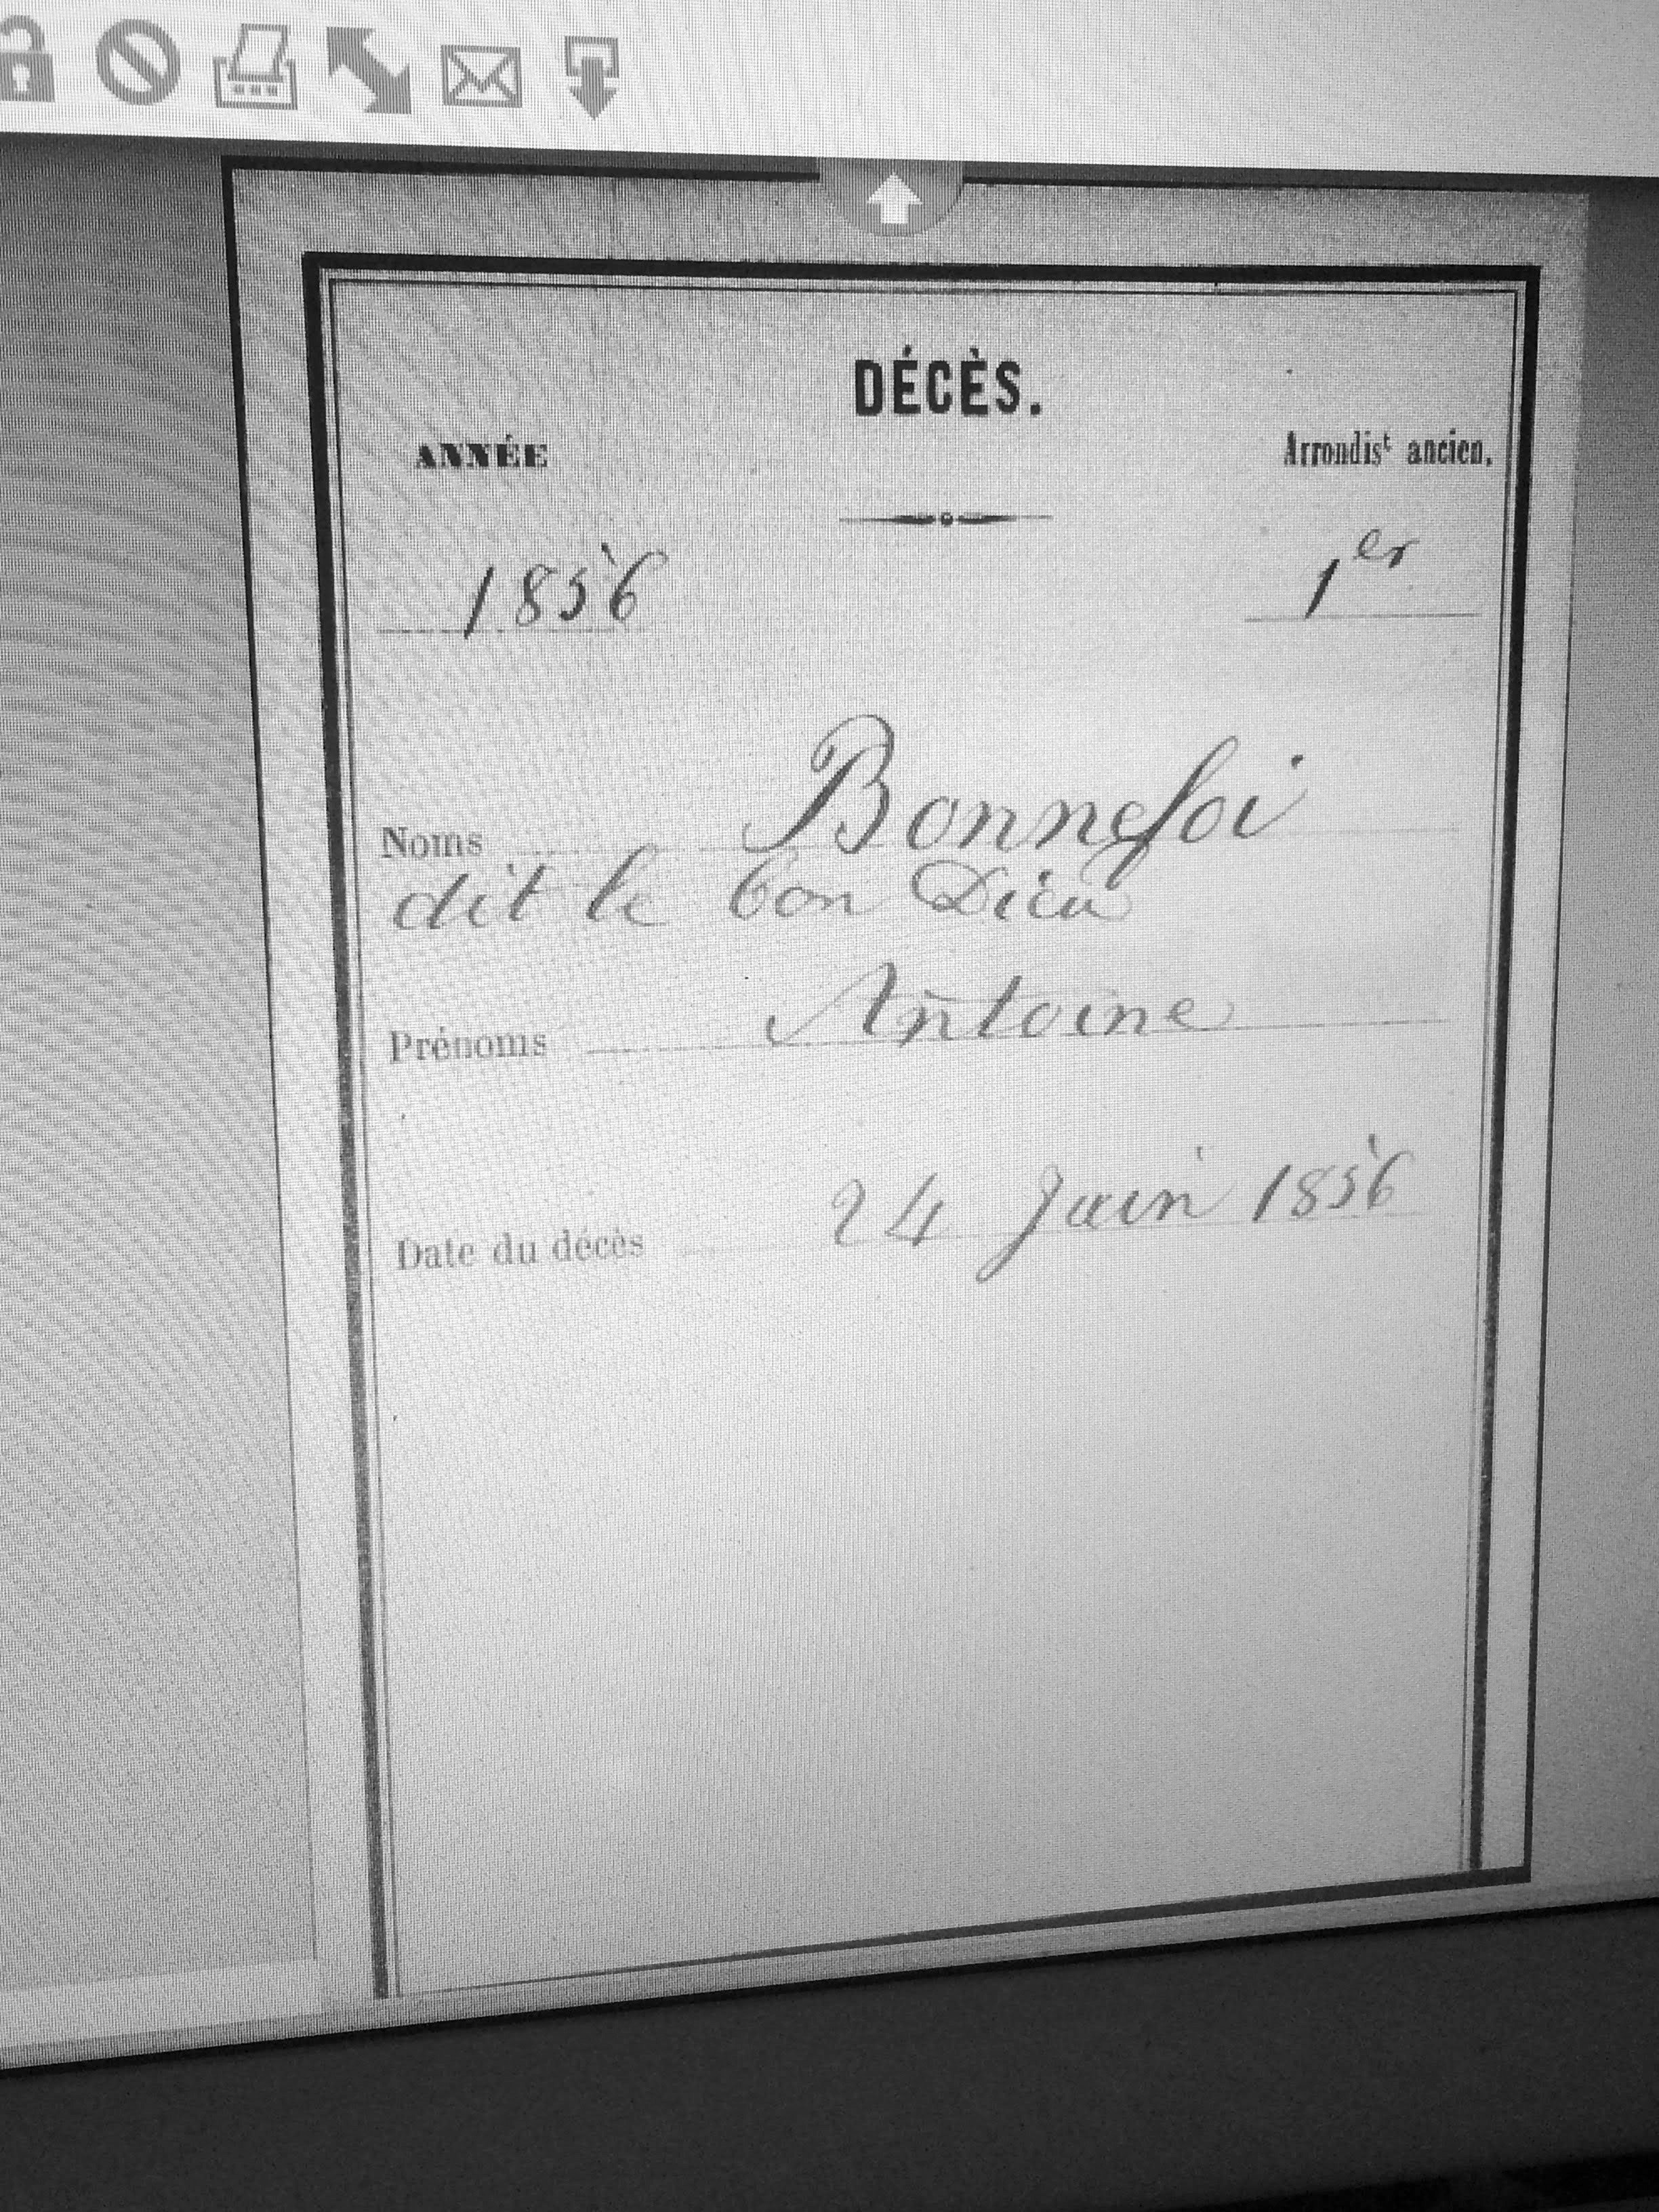 DÉCÈS.
ANNÉE
Arrondist ancien.
1856
1er
Noms Bonnefoi
dit le bon Dieu
Prénoms Antoine
Date du décès 24 Juin 1856